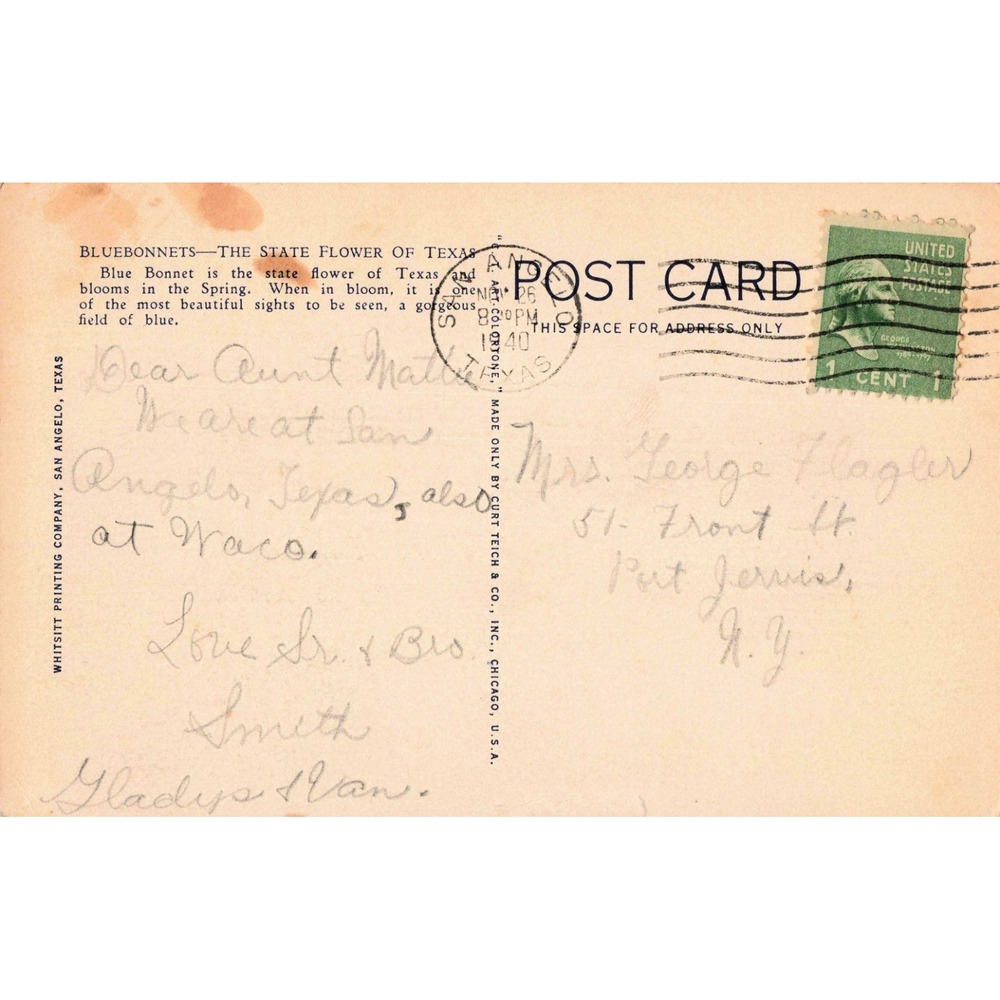 BLUEBONNETS—THE STATE FLOWER OF TEXAS
Blue Bonnet is the state flower of Texas and
blooms in the Spring. When in bloom, it is one
of the most beautiful sights to be seen, a gorgeous
field of blue.
WHITSITT PRINTING COMPANY, SAN ANGELO, TEXAS
Dear Aunt Mattie
We are at San
Angelo, Texas, also
at Waco.
Love Sr. & Bro.
Smith
Gladys & Van.
"C. T. ART-COLORTONE," MADE ONLY BY CURT TEICH & CO., INC., CHICAGO, U.S.A.
SAN ANGELO
NOV 26
8 30 PM
1940
TEXAS
POST CARD
THIS SPACE FOR ADDRESS ONLY
UNITED
STATES
POSTAGE
GEORGE
WASHINGTON
1 CENT 1
Mrs. George Flagler
51- Front St.
Port Jervis,
N.Y.